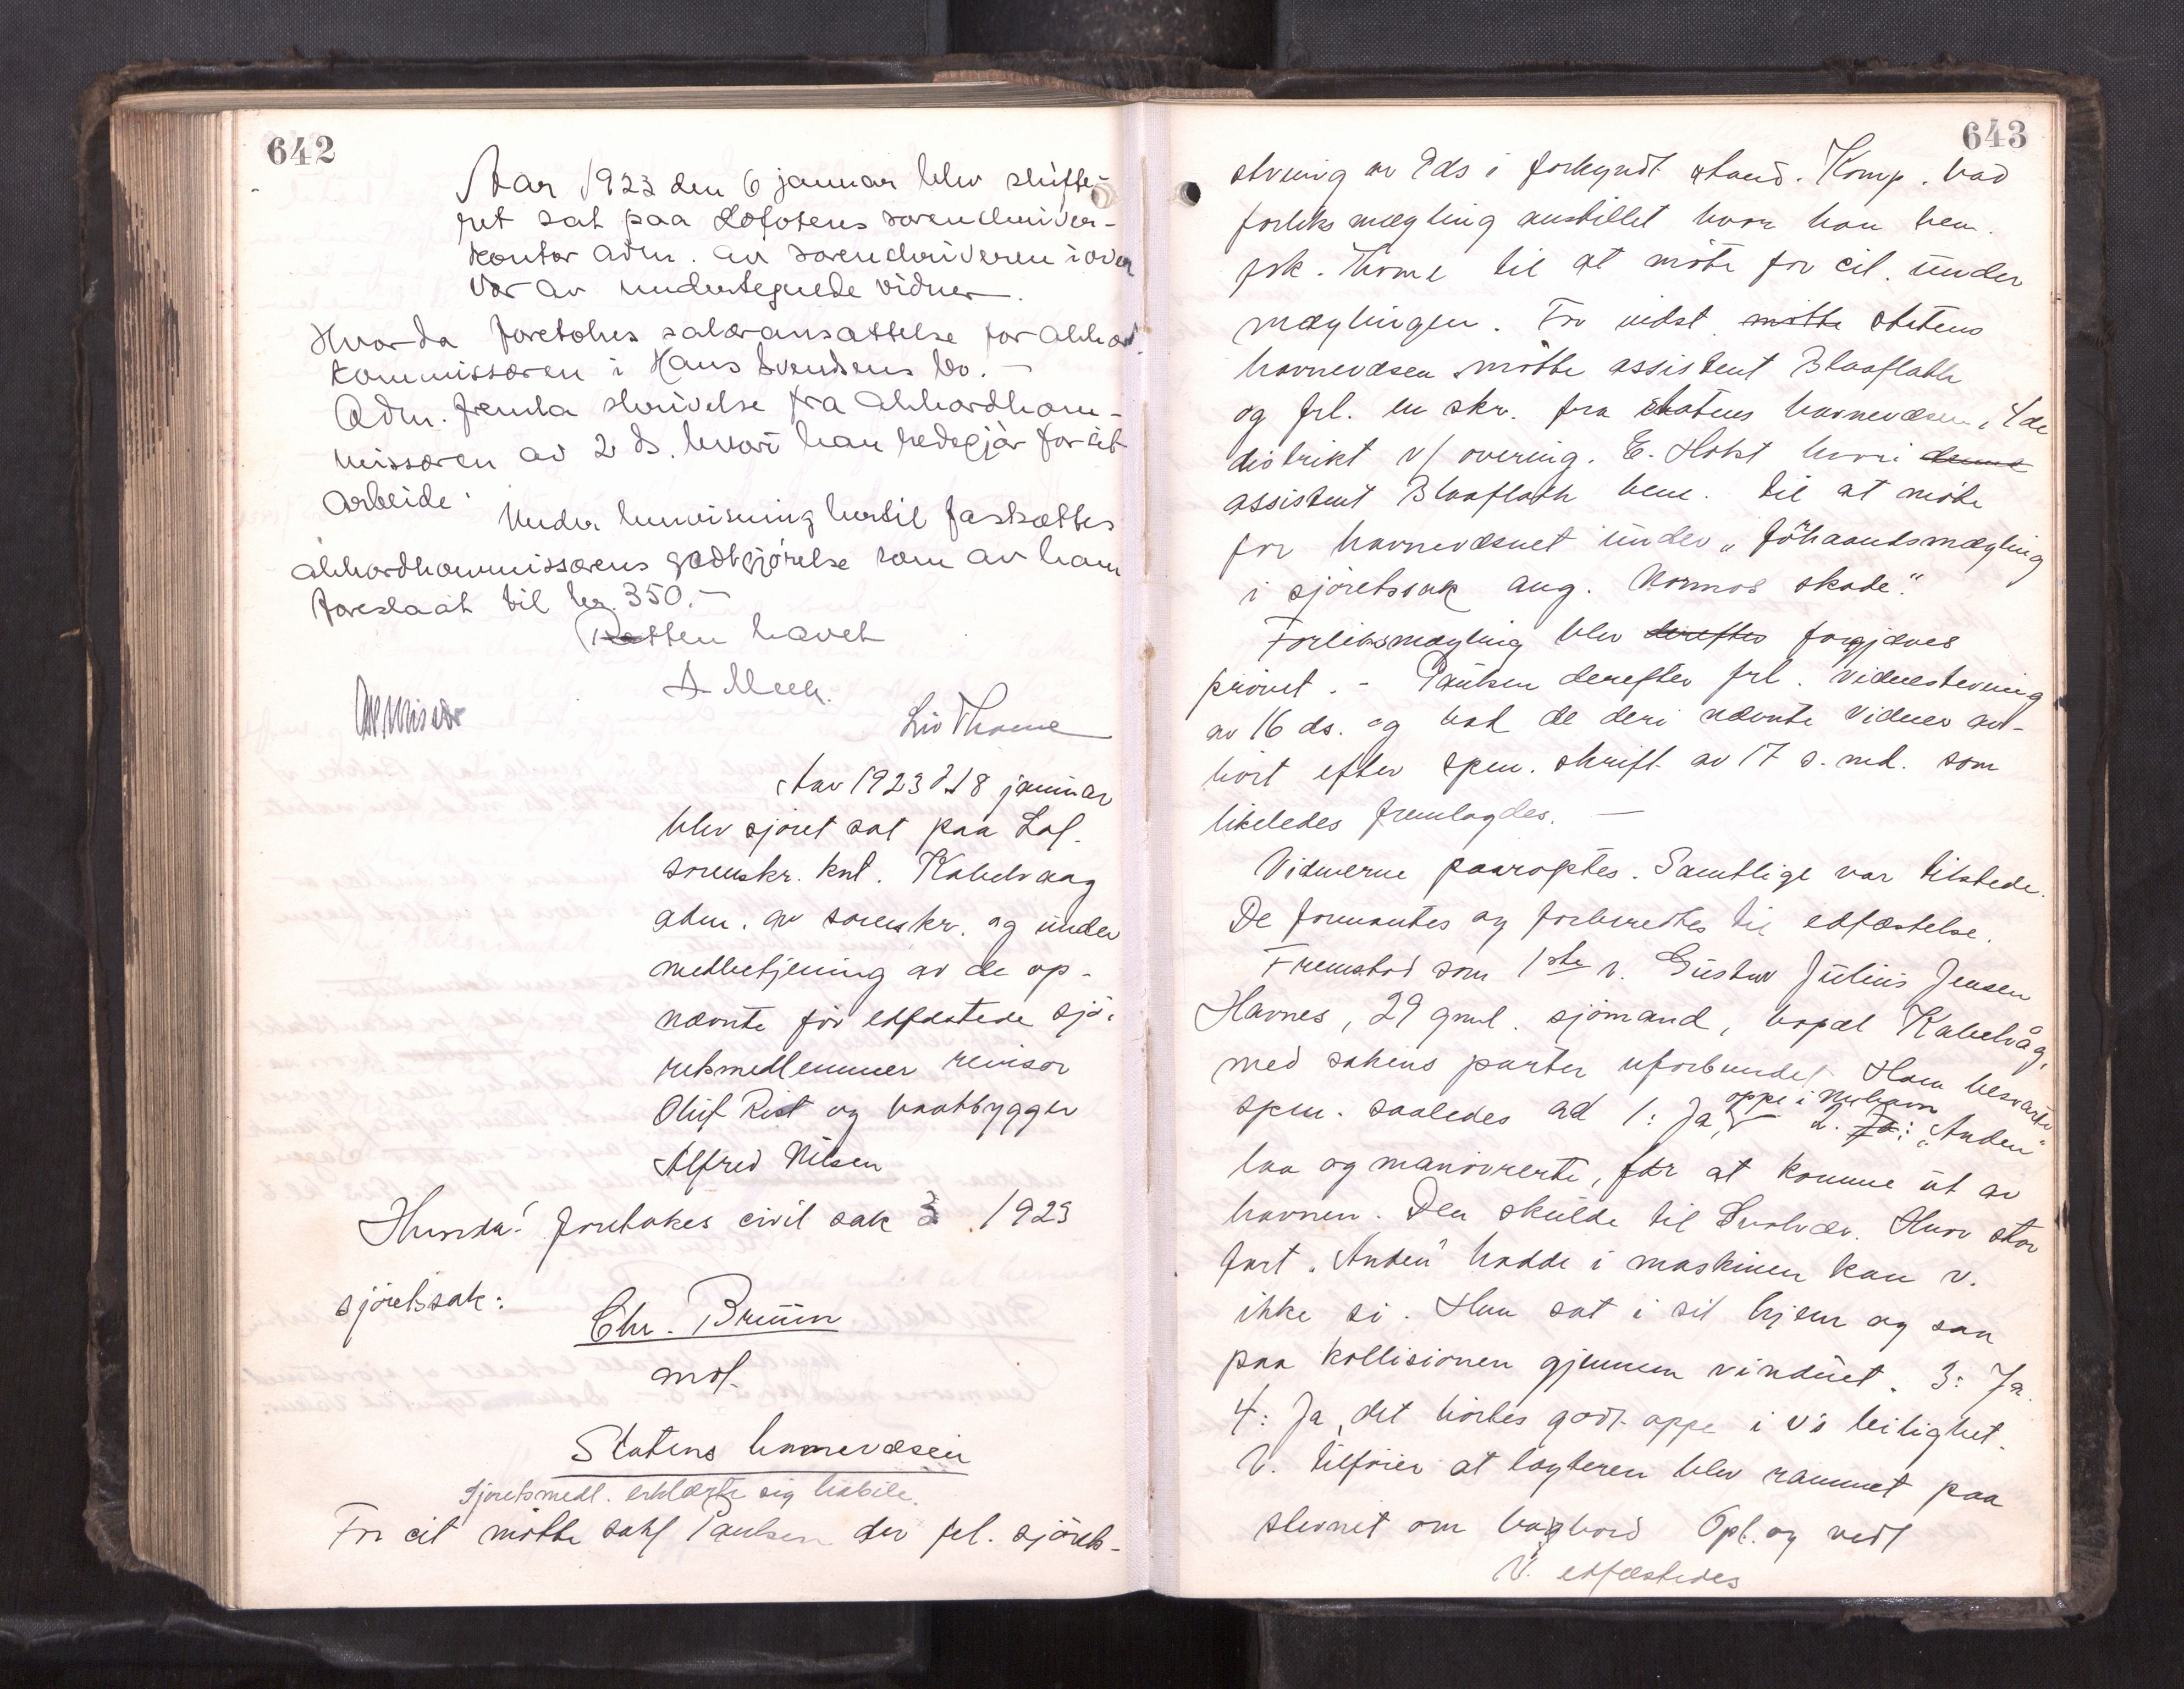 642
Aar 1923 den 6 januar blev skifte-
ret sat paa Lofotens sorenskriver-
kontor adm. av sorenskriveren i over
vær av undertegnede vidner.
Hvorda foretokes salæransættelse for akkord-
kommissæren i Hans Svendsens bo. –
Adm. fremla skrivelse fra akkordkom-
missæren av 2 ds. hvori han redegjør for sit
arbeide.
Under henvisning hertil fastsættes
akkordkommissærens godtgjørelse som av ham
foreslaat til kr. 350.–
Retten hævet
A Meek.
Liv Thome
Aar 1923 d. 18 januar
blev sjøret sat paa Lof.
sorenskr. knt. Kabelvaag
adm. av sorenskr. og under
medbetjening av de op-
nævnte før edfæstede sjø-
retsmedlemmer revisor
Oluf Rist og baatbygger
Alfred Nilsen
Hvorda: foretokes civil sak 3 1923
sjøretssak:
Chr. Brüün
mot
Statens havnevæsen
Sjøretsmedl. erklærte sig habile.
For cit møtte sakf Paulsen der frl. sjørets-
643
stevning av 2ds i forkyndt stand. Komp. bad
forliksmægling anstillet hvor han bem.
frk. Thome til at møte for cit. under
mæglingen. For indst møtte statens
havnevæsen møtte assistent Blaaflath
og frl. en skr. fra statens havnevæsen, 4de
distrikt v/ overing. E. Holst hvori denne
assistent Blaaflath bem. til at møte
for havnevæsnet under „förhaandsmægling
i sjøretssak ang. Normos skade."
Forliksmægling blev derefter forgjæves
prøvet. – Paulsen derefter frl. vidnestevning
av 16 ds. og bad de deri nævnte vidner av-
hørt efter spm. skrift av 17 s. md. som
likeledes fremlagdes. –
Vidnerne paaroptes. Samtlige var tilstede.
De formantes og forberedtes til edfæstelse.
Fremstod som 1ste v. Gustav Julius Jensen
Havnes, 29 gml. sjømand, bopæl Kabelvåg,
med sakens parter uforbundet. Ham besvarte
spm. saaledes ad 1: Ja, oppe i Nerhavn 2. Ja: „Anden"
laa og manøvrerte, før at komme ut av
havnen. Den skulde til Svolvær. Hvor stor
fart „Anden" hadde i maskinen kan v.
ikke si. Han sat i sit hjem og saa
paa kollisionen gjennem vinduet. 3: Ja.
4: Ja, det hørtes godt oppe i v's leilighet.
V. tilføier at lagteren blev rammet paa
stevnet om bagbord Opl. og vedt
V. edfæstedes